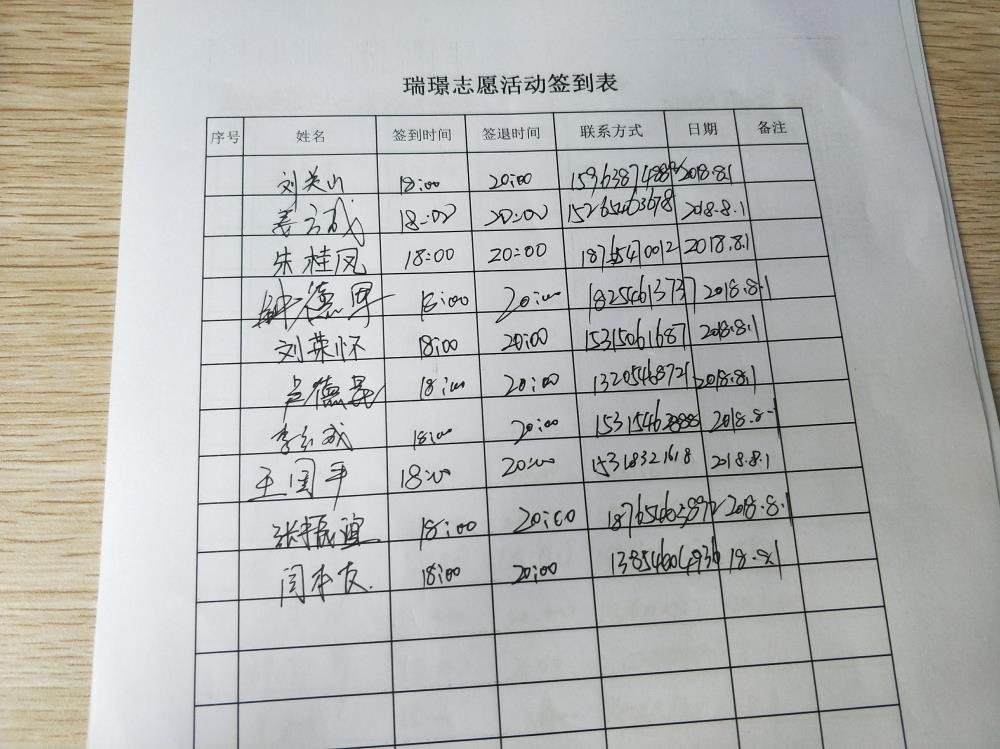 瑞璟志愿活动签到表
序号 姓名 签到时间 签退时间 联系方式 日期 备注
刘关山 18:00 20:00 2018.8.1
姜立武 18:00 20:00 15265463678 2018.8.1
朱桂凤 18:00 20:00 18765470012 2018.8.1
德 18:00 20:00 18254613737 2018.8.1
刘荣怀 18:00 20:00 15315061687 2018.8.1
卢德 18:00 20:00 13205468721 2018.8.1
李 成 18:00 20:00 2018.8.1
王国平 18:00 20:00 15318321618 2018.8.1
张振谊 18:00 20:00 2018.8.1
闫本友 18:00 20:00 13854604936 18.8.1